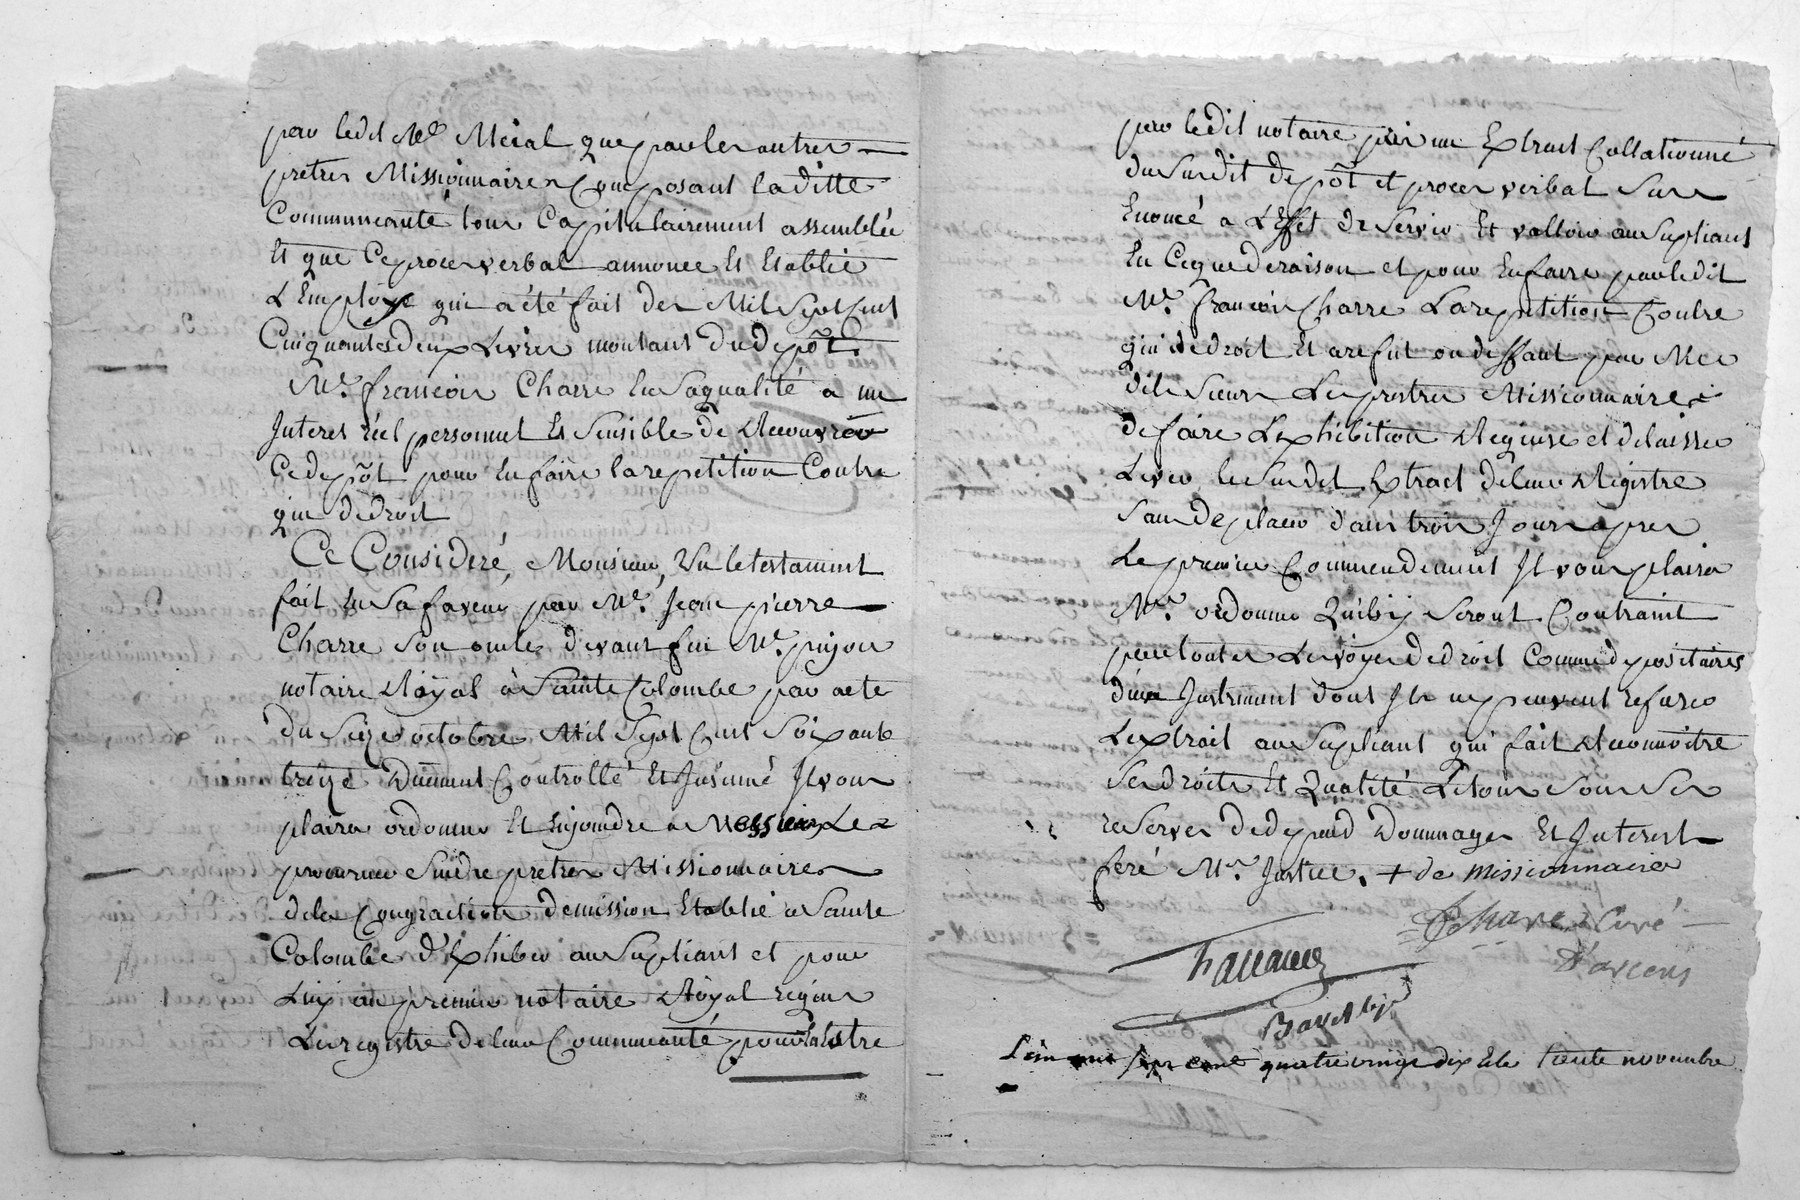 par ledit Mre Meral que par les autres
pretres Missionnaires Composant laditte
Communeauté tous Capitulairement assemblée
Et que Ce proces verbal annonce Et Etablie
L'Employe qui a été fait des Mil Sept Cent
Cinquantes deux Livres montant du depôt.
Mre. francois Charre En Sa qualité a un
Interet réel personnel Et Sensible de Recouvrer
Ce depôt pour En faire la repetition Contre
qui de droit
Ce Consideré, Monsieur, Vu le testament
fait En Sa faveur par Mre. Jean pierre
Charre Son oncle devant feu Me. pinjon
notaire Royal à Sainte Colombe par acte
du Seize octobre Mil Sept Cent Soixante
treize Duement Controllé Et Insinué Il vous
plaira ordonner Et Enjoindre a Messieurs Les
procureur Sindic pretres Missionnaires
de la Congraction demission Etablie a Sainte
Colombe d'Exhiber au Supliant et pour
Luy au premier notaire Royal requis
Le registre de leur Communeauté pour Estre
par le dit notaire pris un Extrait Collationné
du Surdit depôt et proces verbal Sus
Enoncé a L'Effet de Servir Et valloir au Supliant
En Ce que de raison et pour En faire par ledit
Mre. francois Charre La repetition Contre
qui de droit Et a refut ou deffaut par Mes
dits Sieurs Les prestres Missionnaires
de faire L'Exhibition Requise et delaisser
Lever le Surdit Extrait de leur Registre
Sans deplacer dans trois Jours apres
Le premier Commendement Il vous plaira
Mr. ordonner Quils y Seront Contraint
par toutes Les voyes de droit Comme depositaires
d'un Instrument dont Ils ne peuvent refuser
L'extrait au Supliant qui fait Reconnoitre
Ses droits Et Qualité Le tout Sous Ses
reserves de depend Dommages Et Interest
feré Mr. Justice. + de missionnaires
Charre Curé
D'arcens
L'an mil sept cent quatre vingt dix Et le trente novembre